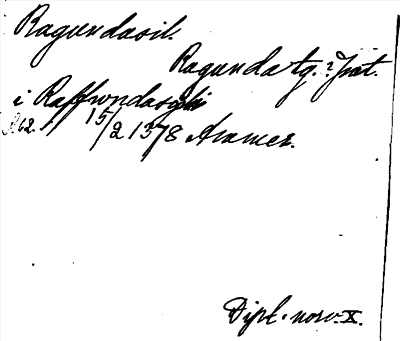 Ragundasil.
Ragunda tg. ? Jmt.
i Raffwndasghi
R 62. 15/2 1378 Aramer.
Dipl. norv. X.